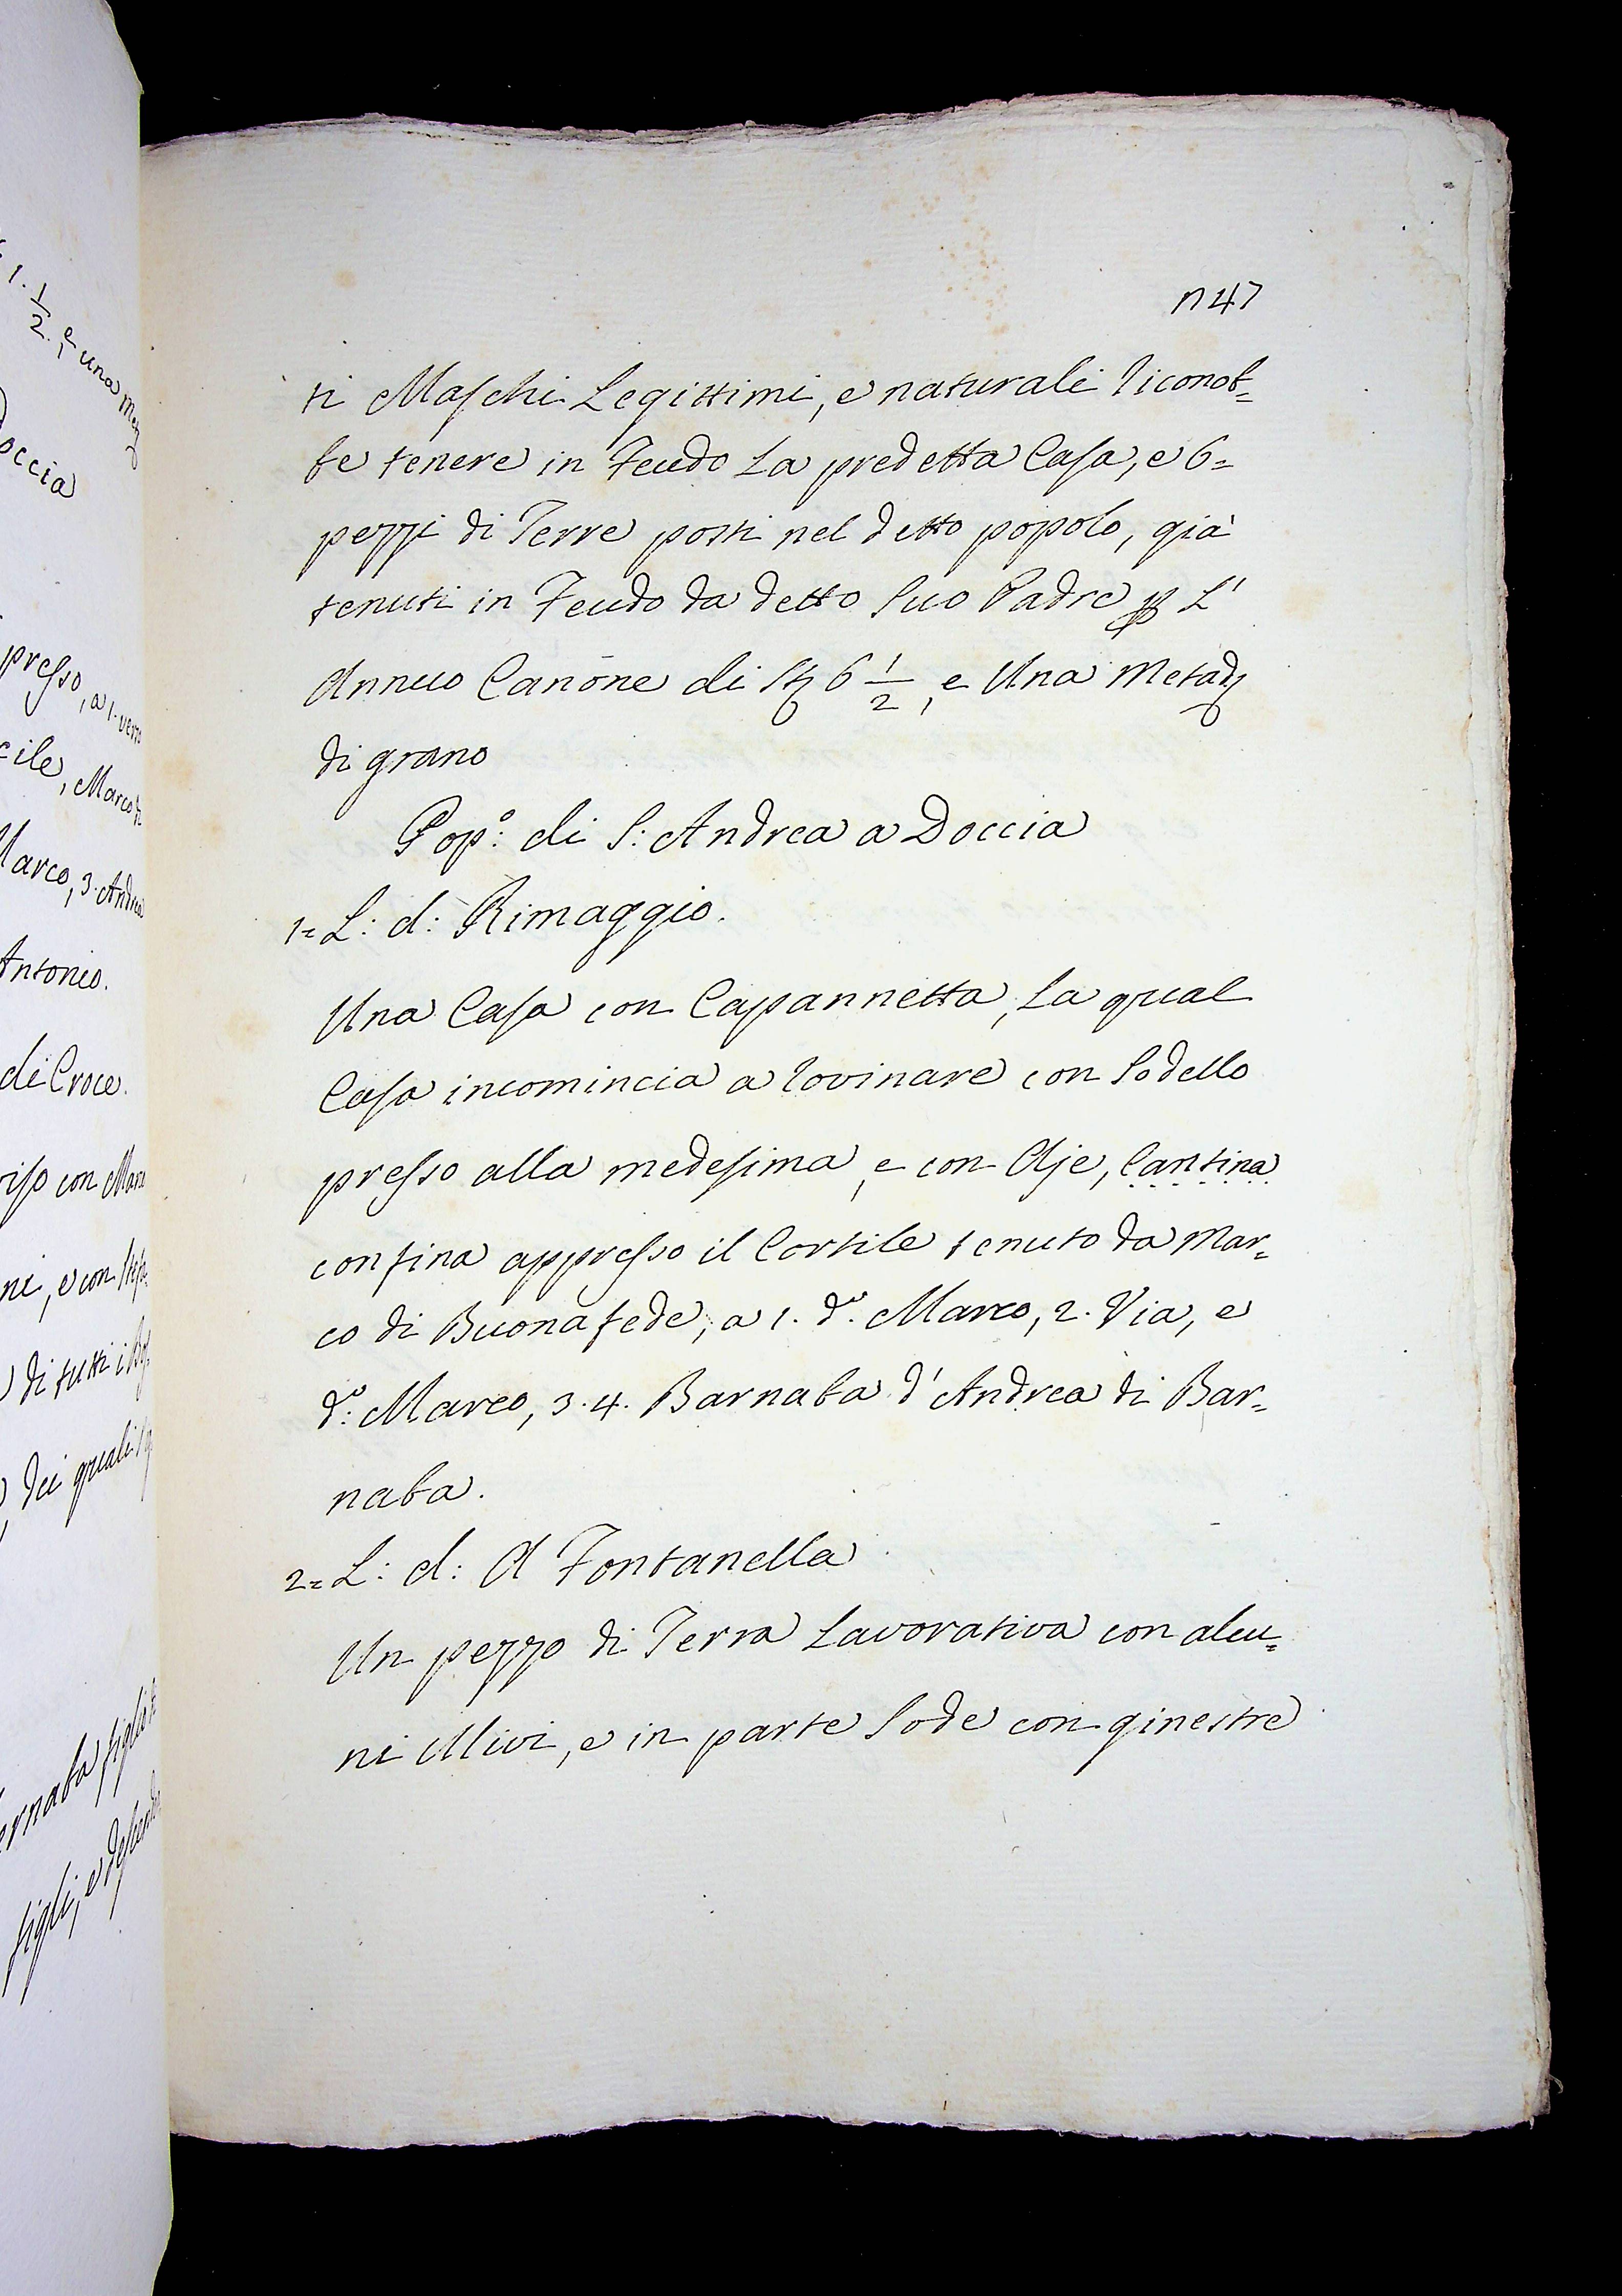 1. 1/2, e una
occia
presso, a 1. verso
cile, Marco
Marco, 3. Andrea
Antonio.
di Croce.
con
ni, e con
di tutti i
dei quali
figli, e
n 47
ti Maschi Legittimi, e naturali riconob=
be tenere in Feudo La predetta Casa, e 6=
pezzi di Terre posti nel detto popolo, già
tenuti in Feudo da detto Suo Padre p L'
Annuo Canone di 6 1/2, e Una Metad
di grano
Pop.º di S: Andrea a Doccia
1= L: d: Rimaggio.
Una Casa con Capannetta, La qual
Casa incomincia a rovinare con Sodello
presso alla medesima, e con Aje, Cantina
confina appresso il Cortile tenuto da Mar=
co di Buonafede, a 1. d.º Marco, 2. Via, e
d.º Marco, 3. 4. Barnaba d'Andrea di Bar=
naba.
2= L: d: A Fontanella
Un pezzo di Terra Lavorativa con alcu=
ni Ulivi, e in parte Sode con ginestre